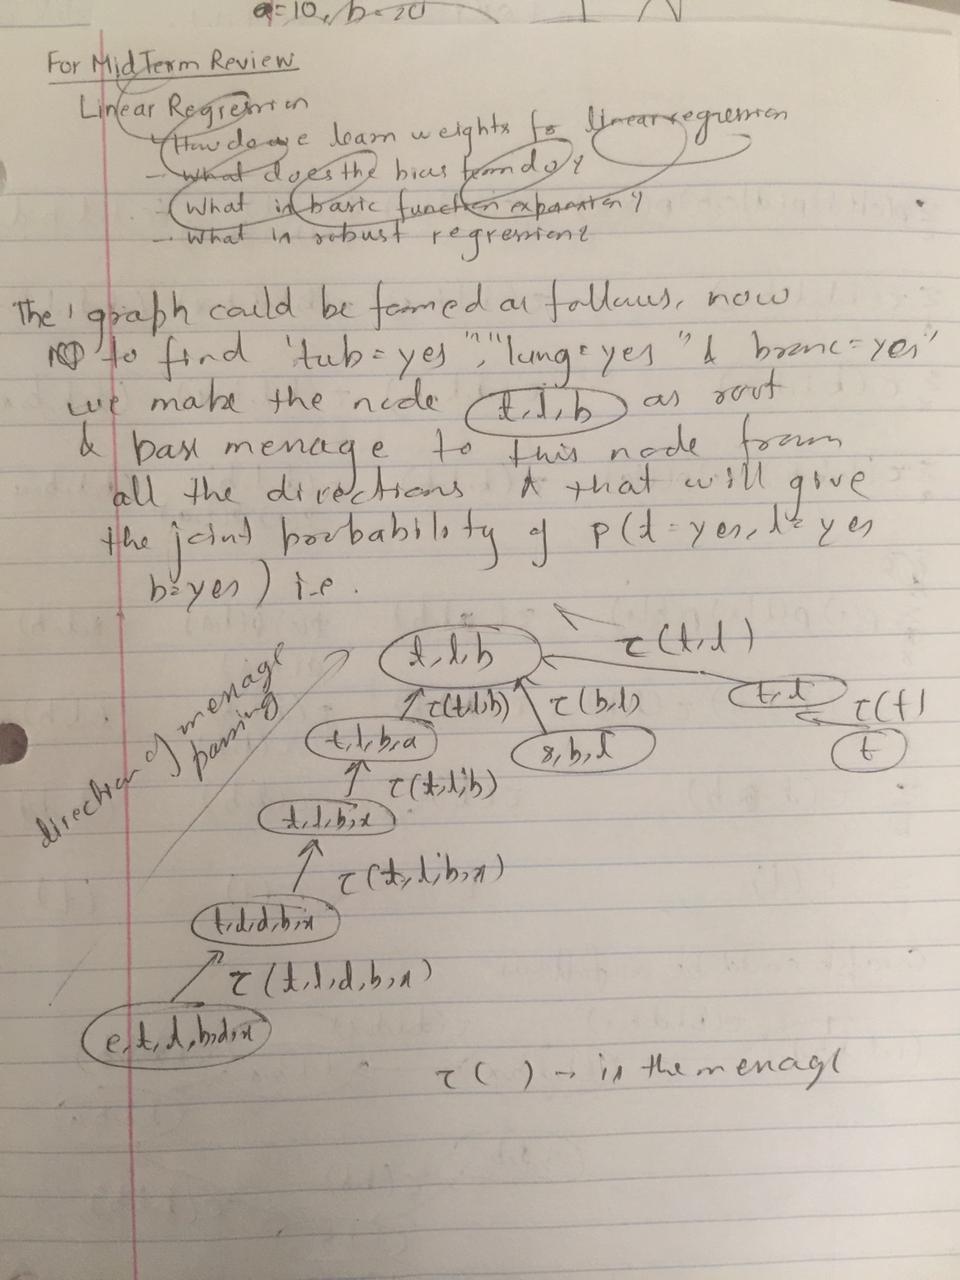 a=10, b=20
For MidTerm Review
Linear Regression
- How do we learn weights for linear regression
- What does the bias term do?
- What is basic function expansion?
- What is robust regression?
The graph could be formed as follows, now
to find "tub=yes", "lung=yes" & bronc=yes"
we make the node t,l,b as root
& pass message to this node from
all the directions & that will give
the joint probability of P(t=yes, l=yes
b=yes) i.e.
t,l,b
τ(t,l)
τ(t,l,b)
τ(b,l)
t,l
τ(t)
t
t,l,b,a
s,b,l
τ(t,l,b)
t,l,b,x
τ(t,l,b,x)
t,l,d,b,x
τ(t,l,d,b,x)
e,t,l,b,d,x
direction of message
passing
τ( ) → is the message